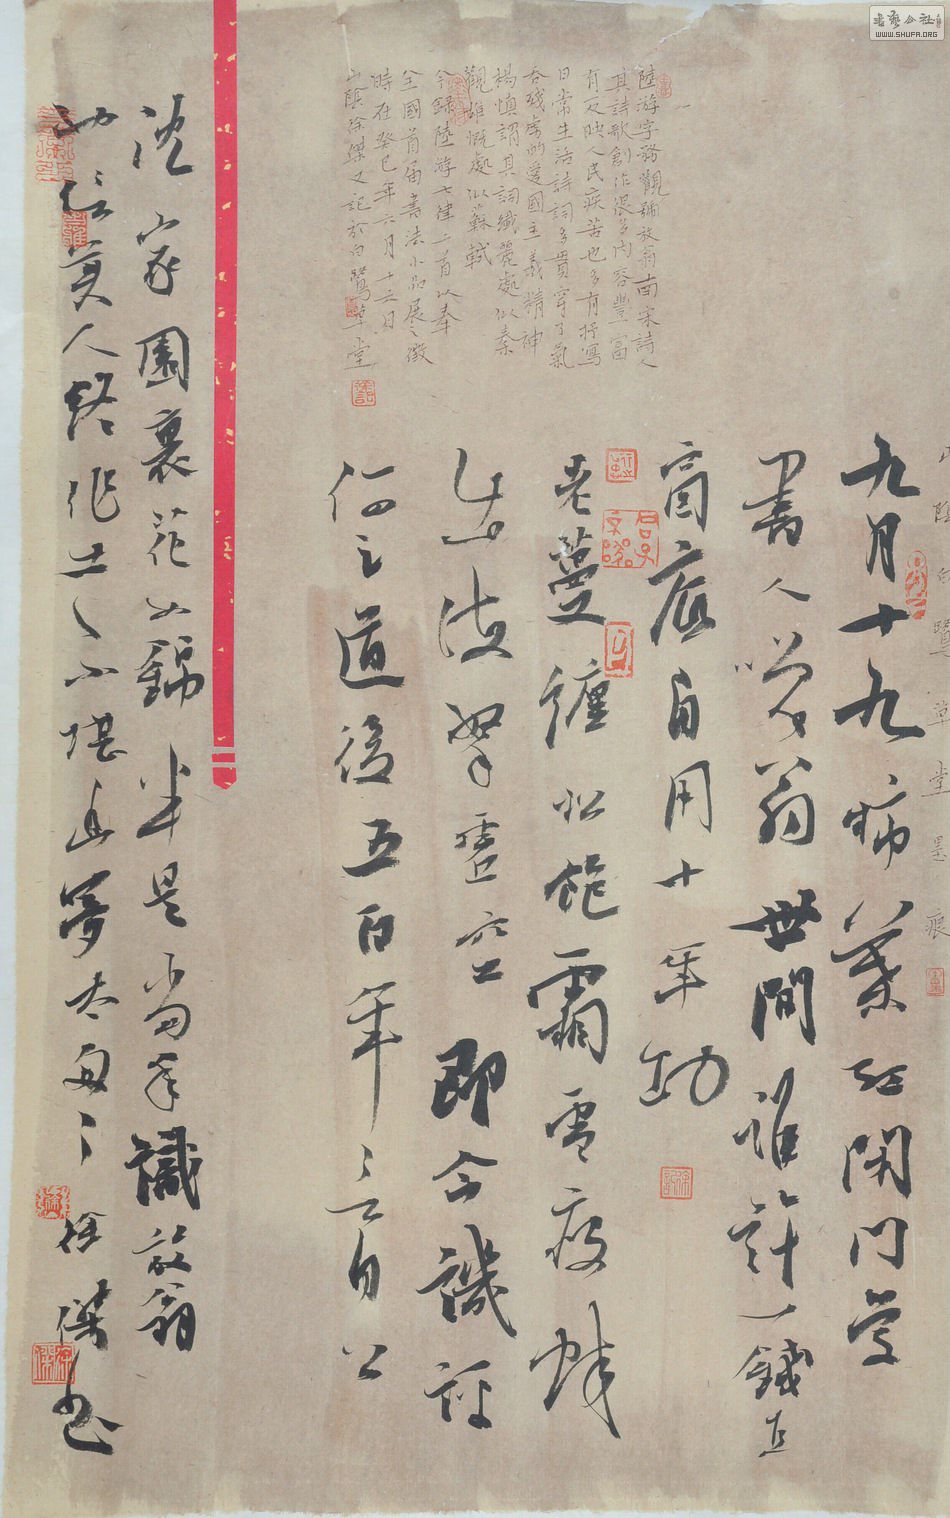 山陰白鷺草堂墨痕
九月十九柿葉紅閉門學
書人笑翁世間誰許一錢直
窗底自用十年功
老蔓纏松飽霜雪瘦蛟
出海拏虛空即今譏評
何足道後五百年言自公
陸游字務觀號放翁南宋詩人
其詩歌創作很多內容豐富
有反映人民疾苦也多有抒寫
日常生活詩詞多貫穿了氣
吞殘虜的愛國主義精神
楊慎謂其詞纖麗處似秦
觀雄慨處似蘇軾
今錄陸游七律二首以奉
全國首届書法小品展之徵
時在癸巳年六月十六日
山陰徐傑又記於白鷺草堂
沈家園裏花如錦半是當年識放翁
也信美人終作土不堪幽夢太匆匆 徐傑書
書藝公社
WWW.SHUFA.ORG